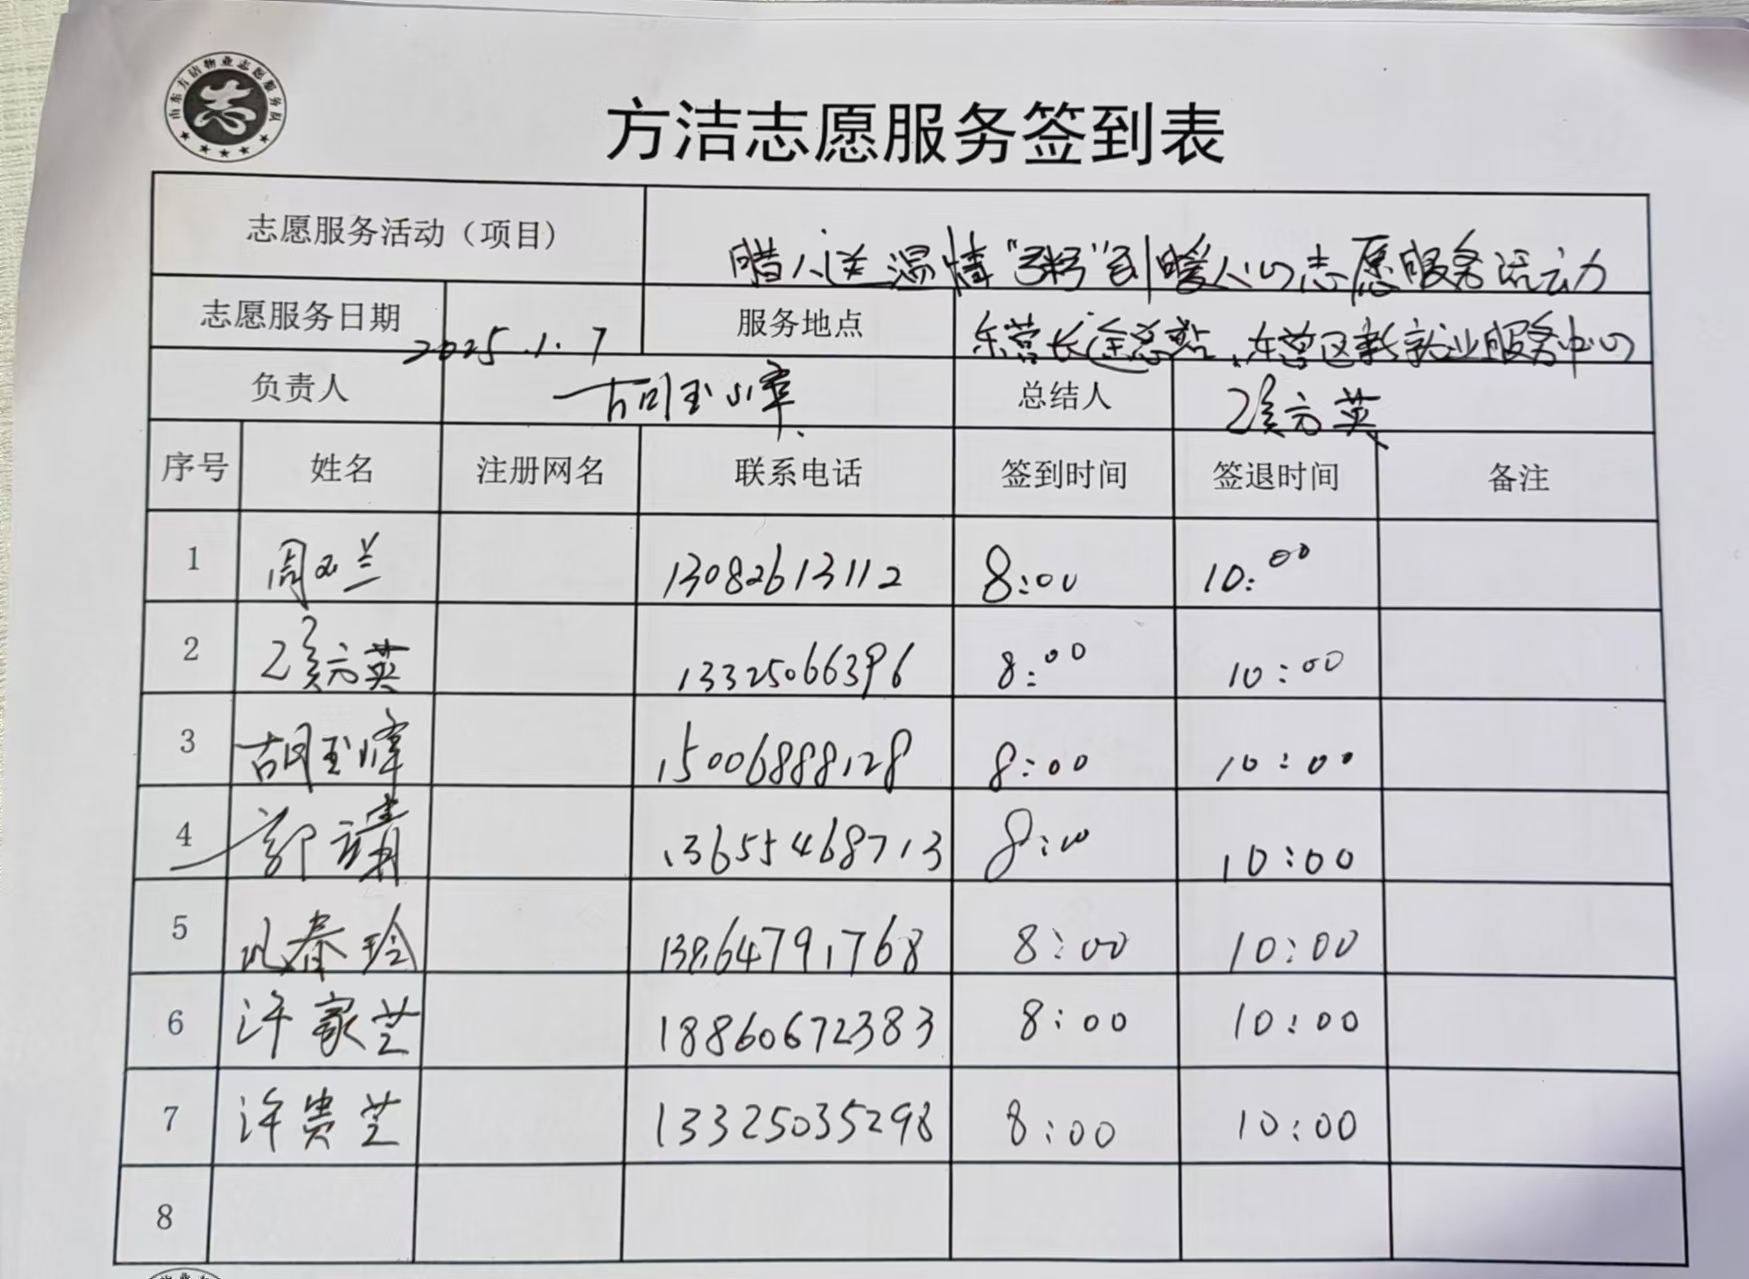 山东方洁物业志愿服务队
方洁志愿服务签到表
志愿服务活动（项目） 腊八送温情"粥"到暖人心志愿服务活动
志愿服务日期 2025.1.7 服务地点 东营长途总站、东营区新就业服务中心
负责人 胡玉峰 总结人 方英
序号 姓名 注册网名 联系电话 签到时间 签退时间 备注
1 周玉兰 13082613112 8:00 10:00
2 方英 13325066396 8:00 10:00
3 胡玉峰 15006888128 8:00 10:00
4 郭靖 13655468713 8:00 10:00
5 春玲 13864791768 8:00 10:00
6 许家芝 18860672383 8:00 10:00
7 许贵芝 13325035298 8:00 10:00
8